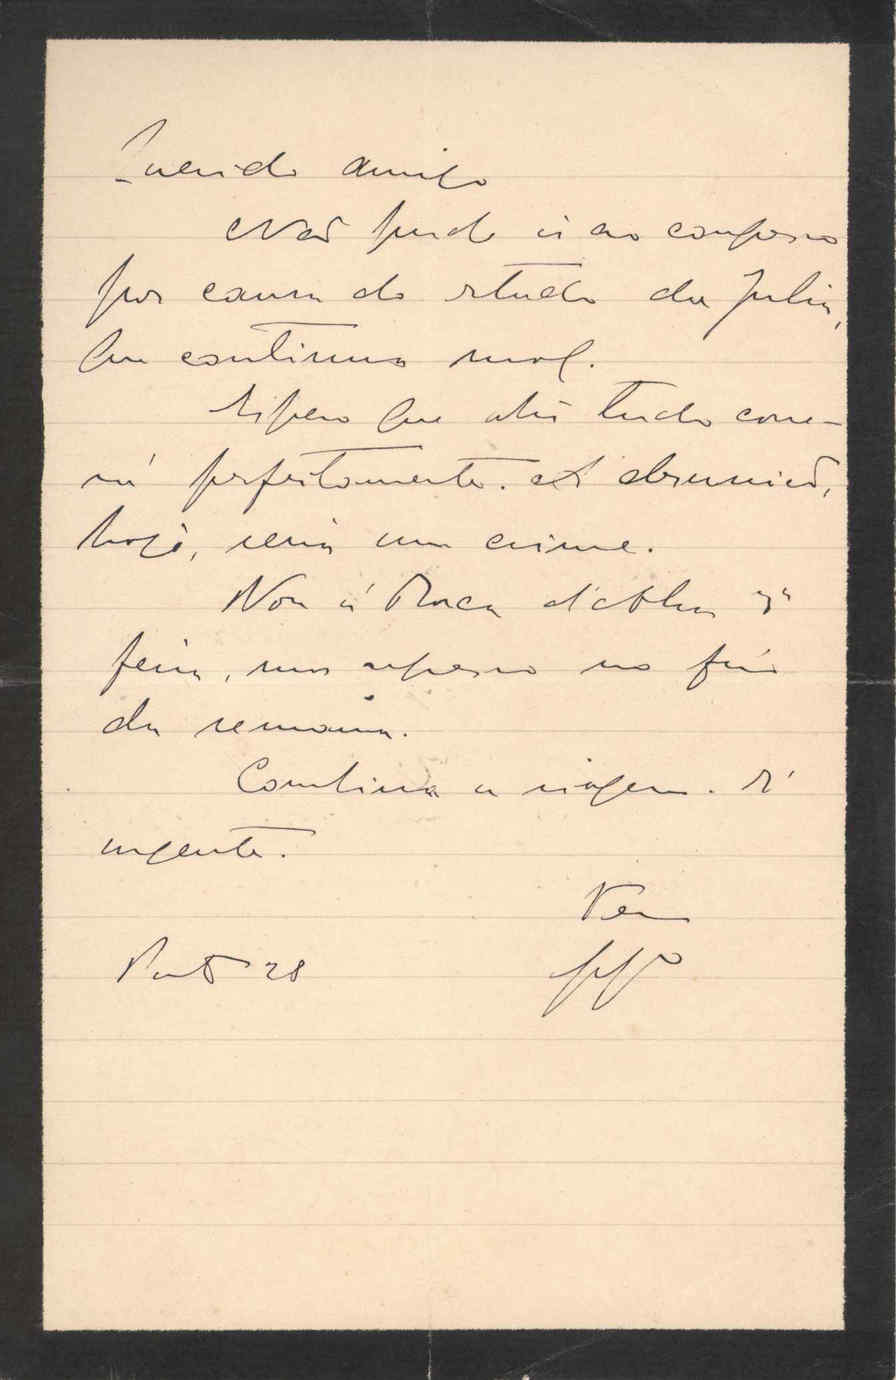 Querido Amigo
Não pude ir ao congresso
por causa do estado da Julia,
que continua mal.
Espero que ahi tudo corre-
rá perfeitamente. A desunião,
hoje, seria um crime.
Vou á Povoa 3ª
feira, mas regresso no fim
da semana.
Combina a viagem. É
urgente.
Teu
Porto 28